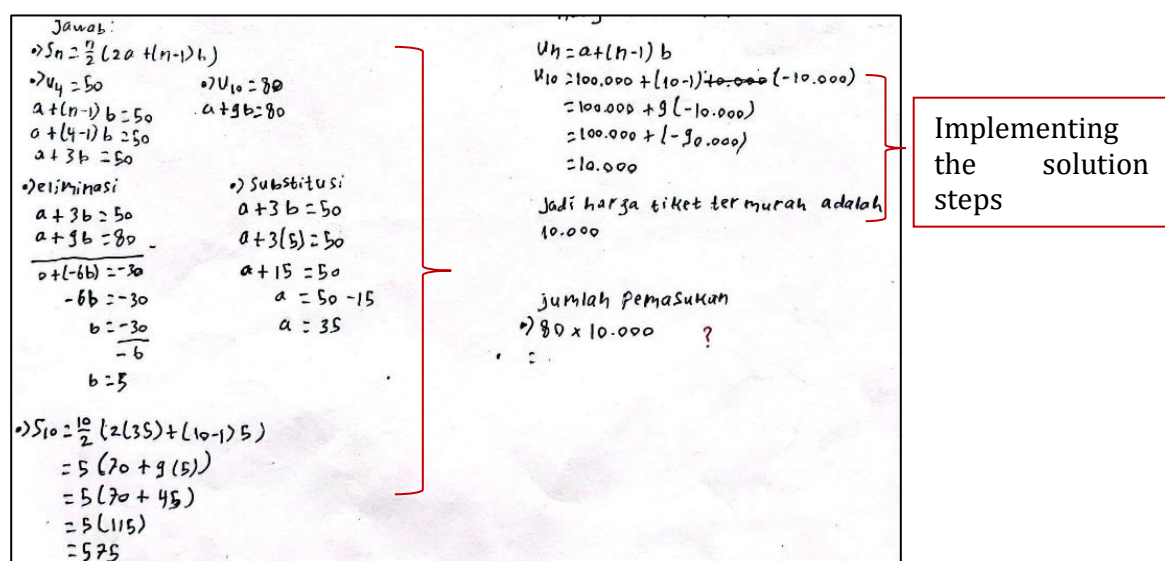 Jawab:
•) Sn = n/2 (2a + (n-1) b)
•) U4 = 50
a + (n-1) b = 50
a + (4-1) b = 50
a + 3b = 50
•) U10 = 80
a + 9b = 80
•) eliminasi
a + 3b = 50
a + 9b = 80 -
0 + (-6b) = -30
-6b = -30
b = -30/-6
b = 5
•) Substitusi
a + 3b = 50
a + 3(5) = 50
a + 15 = 50
a = 50 - 15
a = 35
•) S10 = 10/2 (2(35) + (10-1) 5)
= 5 (70 + 9(5))
= 5 (70 + 45)
= 5 (115)
= 575
Un = a + (n-1) b
U10 = 100.000 + (10-1) 10.000 (-10.000)
= 100.000 + 9 (-10.000)
= 100.000 + (-90.000)
= 10.000
Jadi harga tiket termurah adalah
10.000
jumlah Pemasukan
•) 80 x 10.000 ?
=
Implementing
the solution
steps